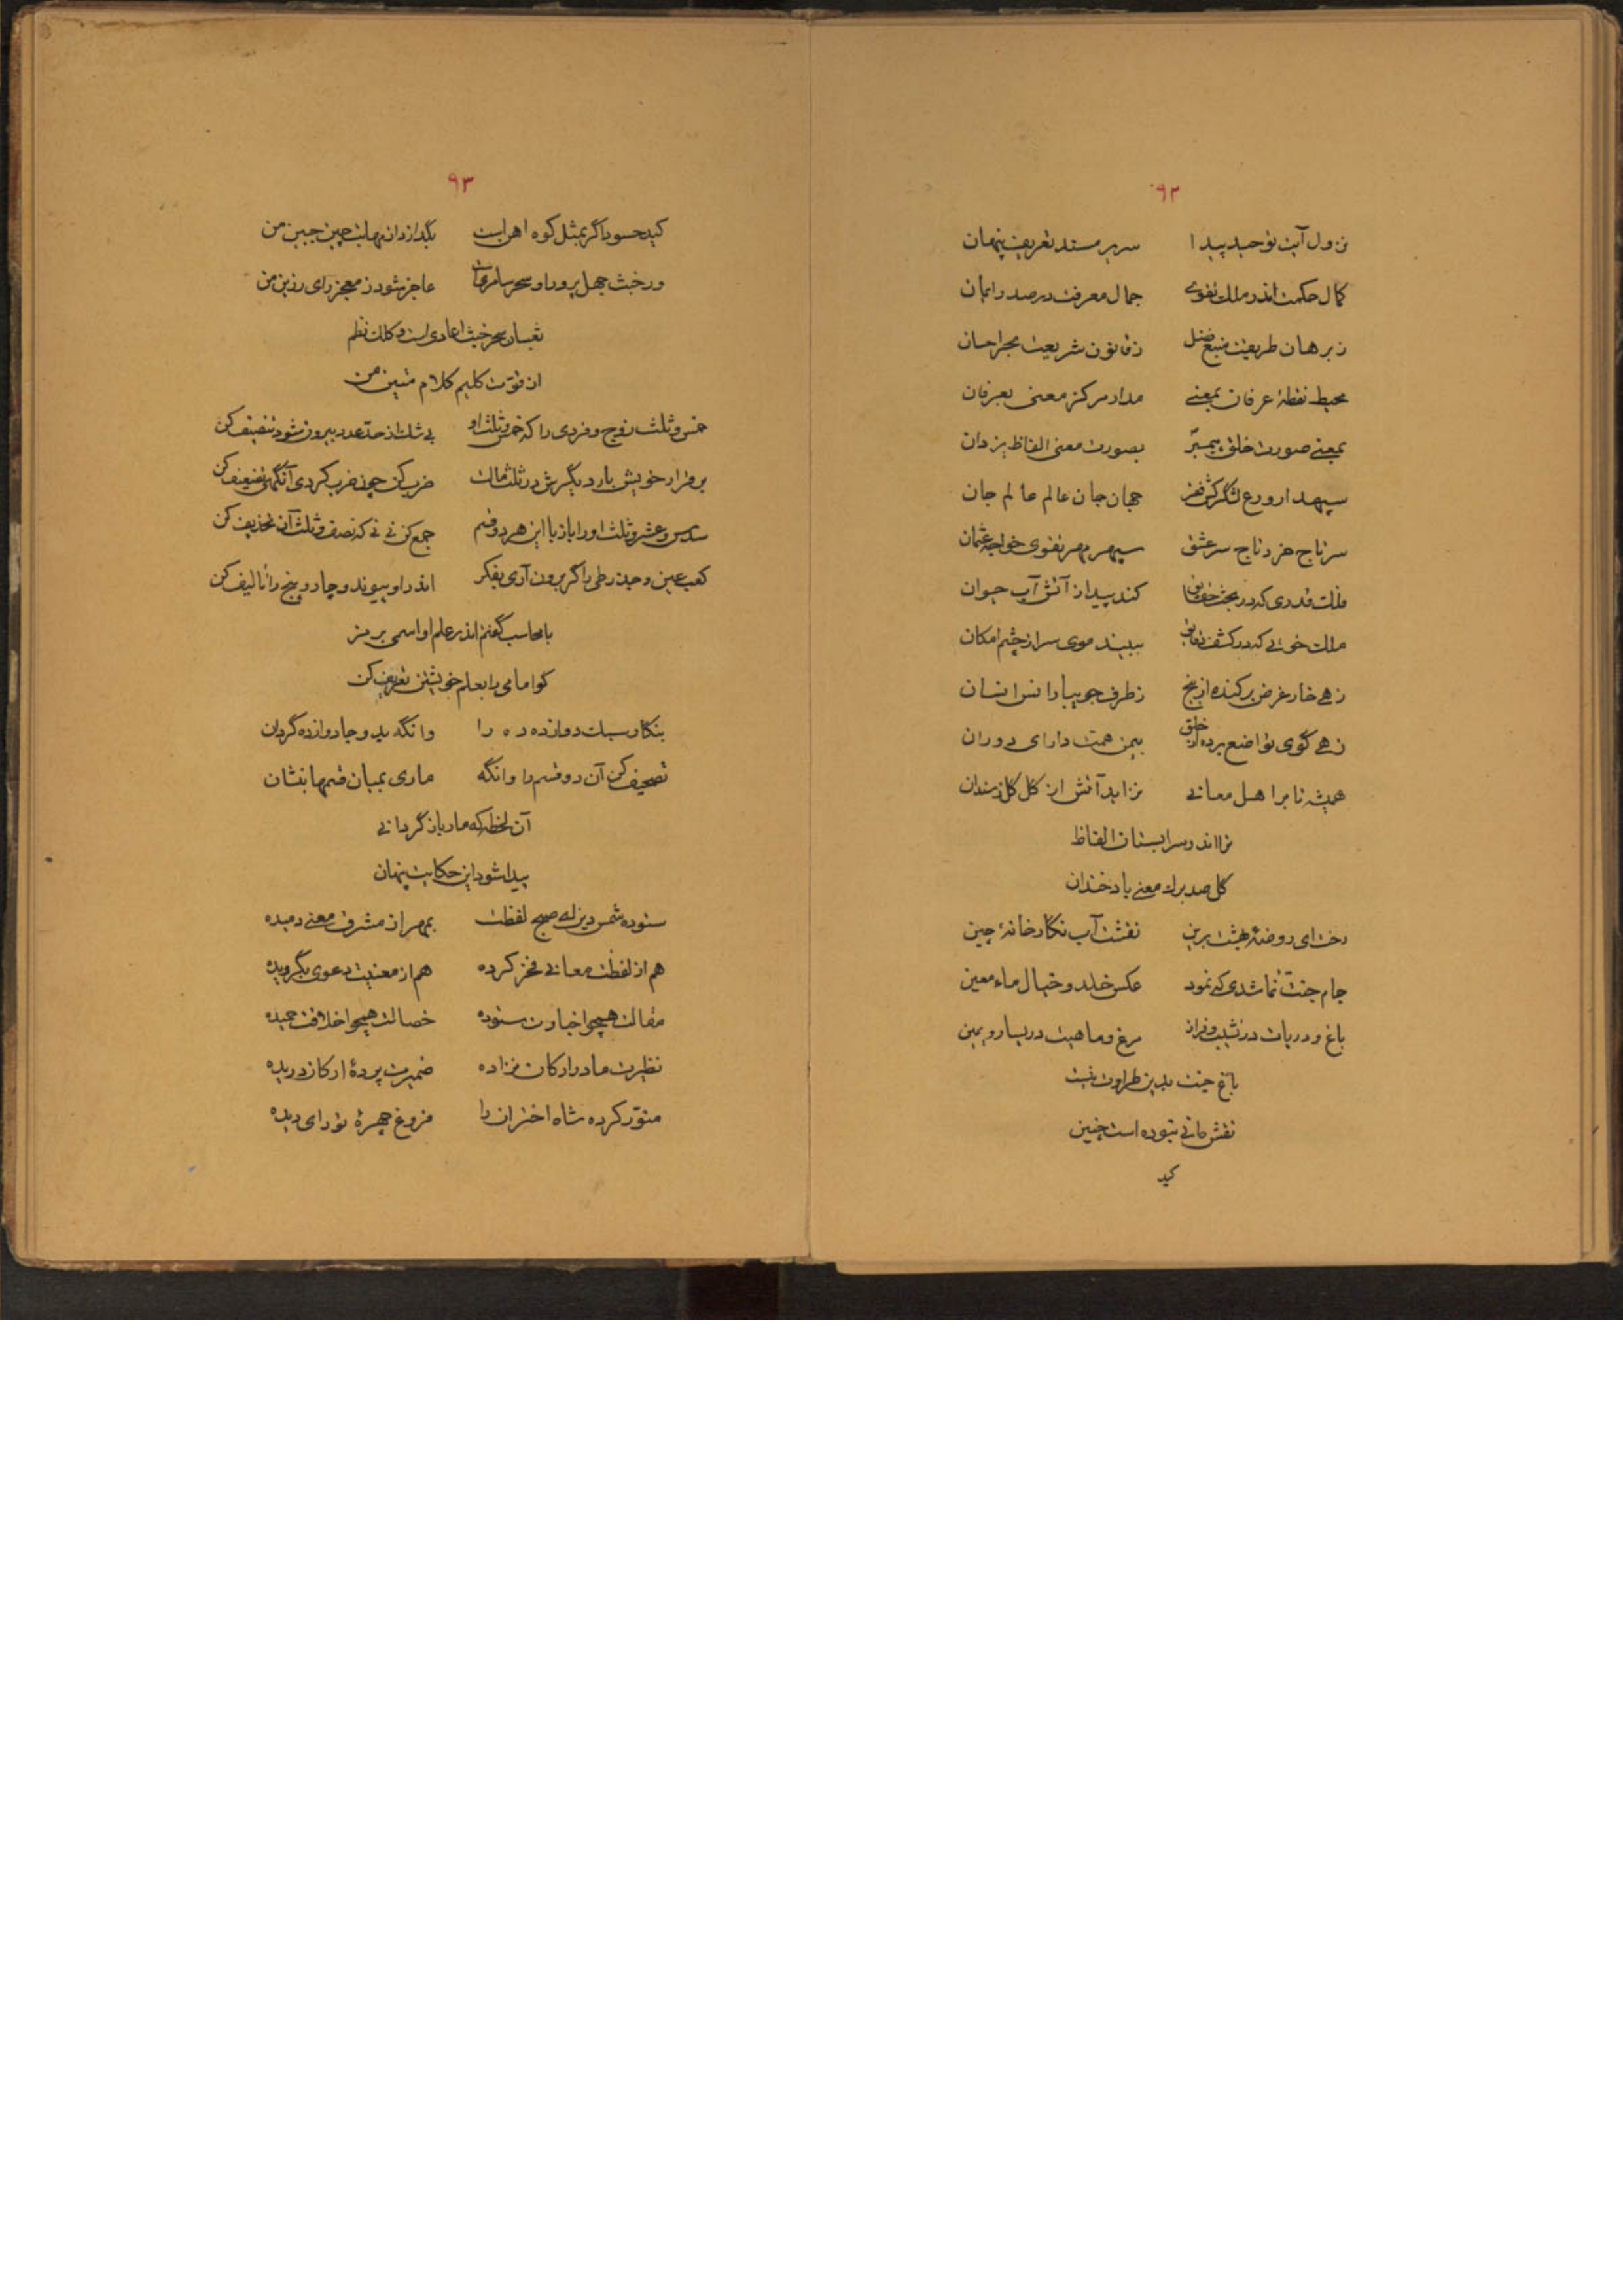 ۹۲
نزول آیت توحید پیدا سریر مسند تعریف پنهان
کمال حکمت اندر ملک تقوی جمال معرفت در صدر ایمان
ز برهان طریقت منبع فضل ز قانون شریعت بحر احسان
محیط نقطهٔ عرفان بمعنی مدار مرکز معنی بعرفان
بمعنی صورت خلق پیمبر بصورت معنی الفاظ یزدان
سپهدار ورع لشگرکش فقر جهان جان عالم عالم جان
سر تاج خرد تاج سر عشق سپهر مهر تقوی خواجه عثمان
فلک قدری که در بحث حقایق کند پیدا ز آتش آب حیوان
ملک خوئی که در کشف دقایق ببیند موی سر از چشم امکان
زهی خار غرض برکنده از بیخ ز طرف جویبار انس انسان
زهی گوی تواضع برده از خلق بیمن همت دارای دوران
همیشه تا بر اهل معانی نزاید آتش از گل گل ز سندان
ترا اندر سرابستان الفاظ
گل صد برگ معنی باد خندان
رخت ای روضهٔ بهشت برین نقشت آب نگارخانهٔ چین
جام جنت نما شدی که نمود عکس خلد و خیال ماء معین
باغ و دریات در نشیب و فراز مرغ و ماهیت در یسار و یمین
باغ جنت بدین طراوت نیست
نقش مانی نبوده است چنین
کید
۹۳
کید حسود اگر بمثل کوه اهن است بگدازد از مهابت چین جبین من
ور خبث جهل پرور او سحر سامریست عاجز شود ز معجز رای رزین من
ثعبان سحر خبث اعادی است کلک نظم
از قوت کلیم کلام متین من
خمس و ثلث زوج و فردی را که خمس و ثلث او بی شک از حد عدد بیرون شود تنصیف کن
بر قرار خویش بار دیگرش در ثلث مالک ضرب کن چون ضرب کردی آنگهی تضعیف کن
سدس و عشر و ثلث او را باز با این هر دو قسم جمع کن نی نی که نصف و ثلث آن تحذیف کن
کعب عین و جذر طی را گر برون آری بفکر اندر او پیوند و چار و پنج را تالیف کن
با محاسب گفتم اندر علم او اسمی برمز
کو امامی را بعلم خویشتن تعریف کن
بنگار سبلت دوازده ده را وانگه بد و جا دوازده گردان
تصحیف کن آن دو قسم را وانگه ماری بمیان قسمها بنشان
آن لحظه که مار بازگردانی
پیدا شود این حکایت پنهان
ستوده شمس دین ای صبح لفظت بمهر از مشرق معنی دمیده
هم از لفظت معانی فخر کرده هم از معنیت دعوی بگرویده
مقالت همچو اخبارت ستوده خصالت همچو اخلاقت حمیده
نظیرت مادر ارکان نزاده ضمیرت پردهٔ ارکان دریده
منور کرده شاه اختران را فروغ چهرهٔ تو رای دیده